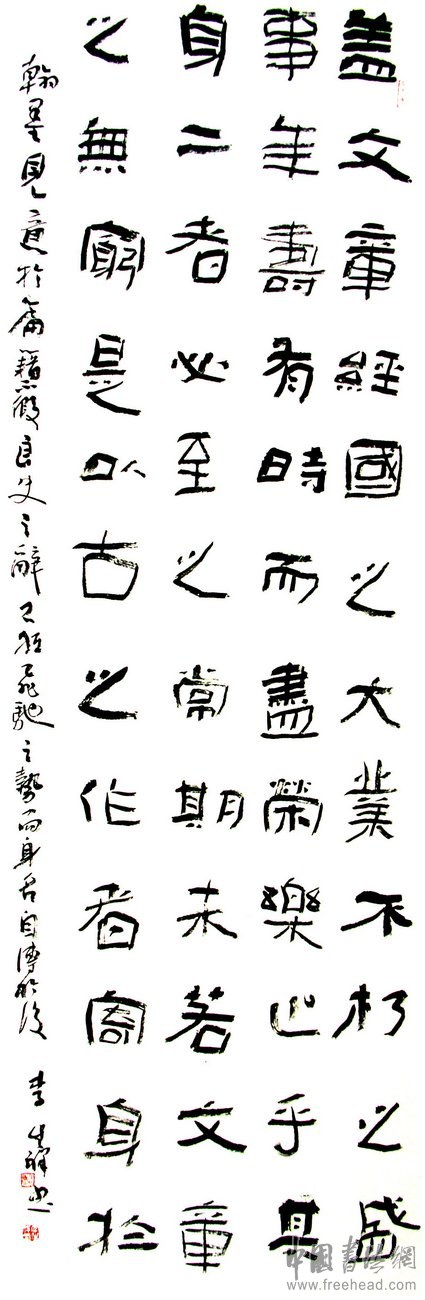 盖文章經國之大業不朽之盛
事年壽有時而盡榮樂止乎其
身二者必至之常期未若文章
之無窮是以古之作者寄身於
翰墨見意於篇籍不假良史之辭不托飛馳之勢而身名自傳於後 李
中國書法網
www.freehead.com